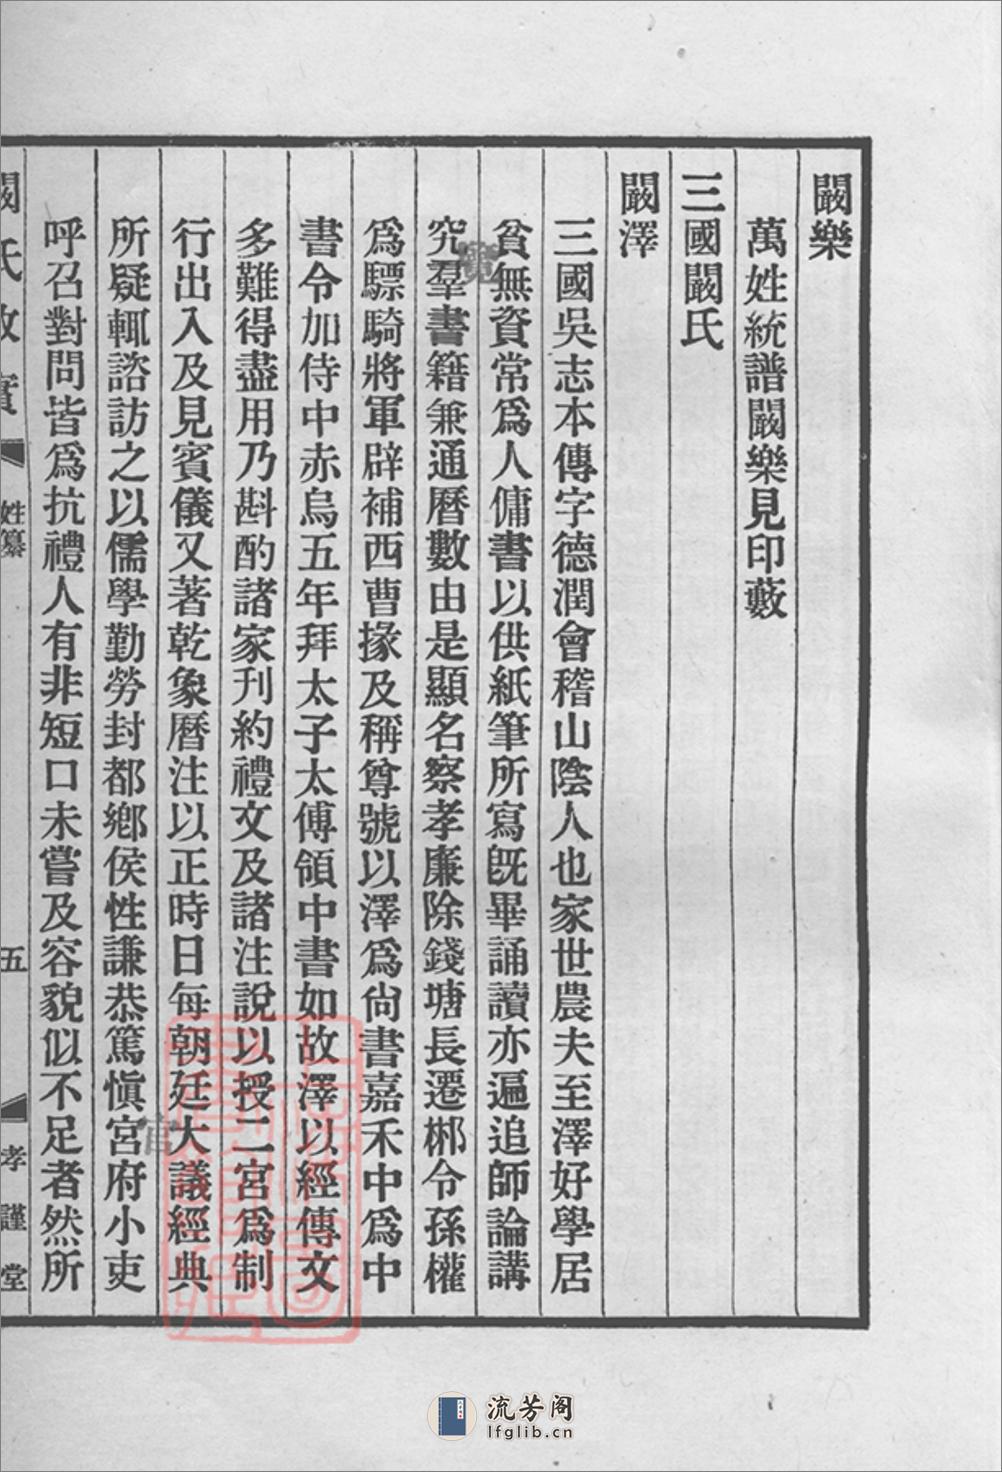 闞樂
萬姓統譜闞樂見印藪
三國闞氏
闞澤
三國吳志本傳字德潤會稽山陰人也家世農夫至澤好學居
貧無資常爲人傭書以供紙筆所寫旣畢誦讀亦遍追師論講
究羣書籍兼通曆數由是顯名察孝廉除錢塘長遷郴令孫權
爲驃騎將軍辟補西曹掾及稱尊號以澤爲尙書嘉禾中爲中
書令加侍中赤烏五年拜太子太傅領中書如故澤以經傳文
多難得盡用乃斟酌諸家刋約禮文及諸注說以授二宮爲制
行出入及見賓儀又著乾象曆注以正時日每朝廷大議經典
所疑輒諮訪之以儒學勤勞封都鄉侯性謙恭篤愼宮府小吏
呼召對問皆爲抗禮人有非短口未嘗及容貌似不足者然所
姓纂
五
孝謹堂
流芳阁
lfglib.cn